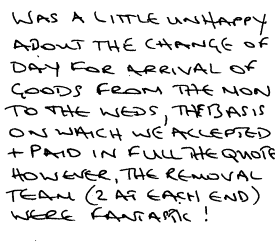 WAS A LITTLE UNHAPPY
ABOUT THE CHANGE OF
DAY FOR ARRIVAL OF
GOODS FROM THE MON
TO THE WEDS, THE BASIS
ON WHICH WE ACCEPTED
+ PAID IN FULL THE QUOTE
HOWEVER, THE REMOVAL
TEAM (2 AT EACH END)
WERE FANTASTIC!